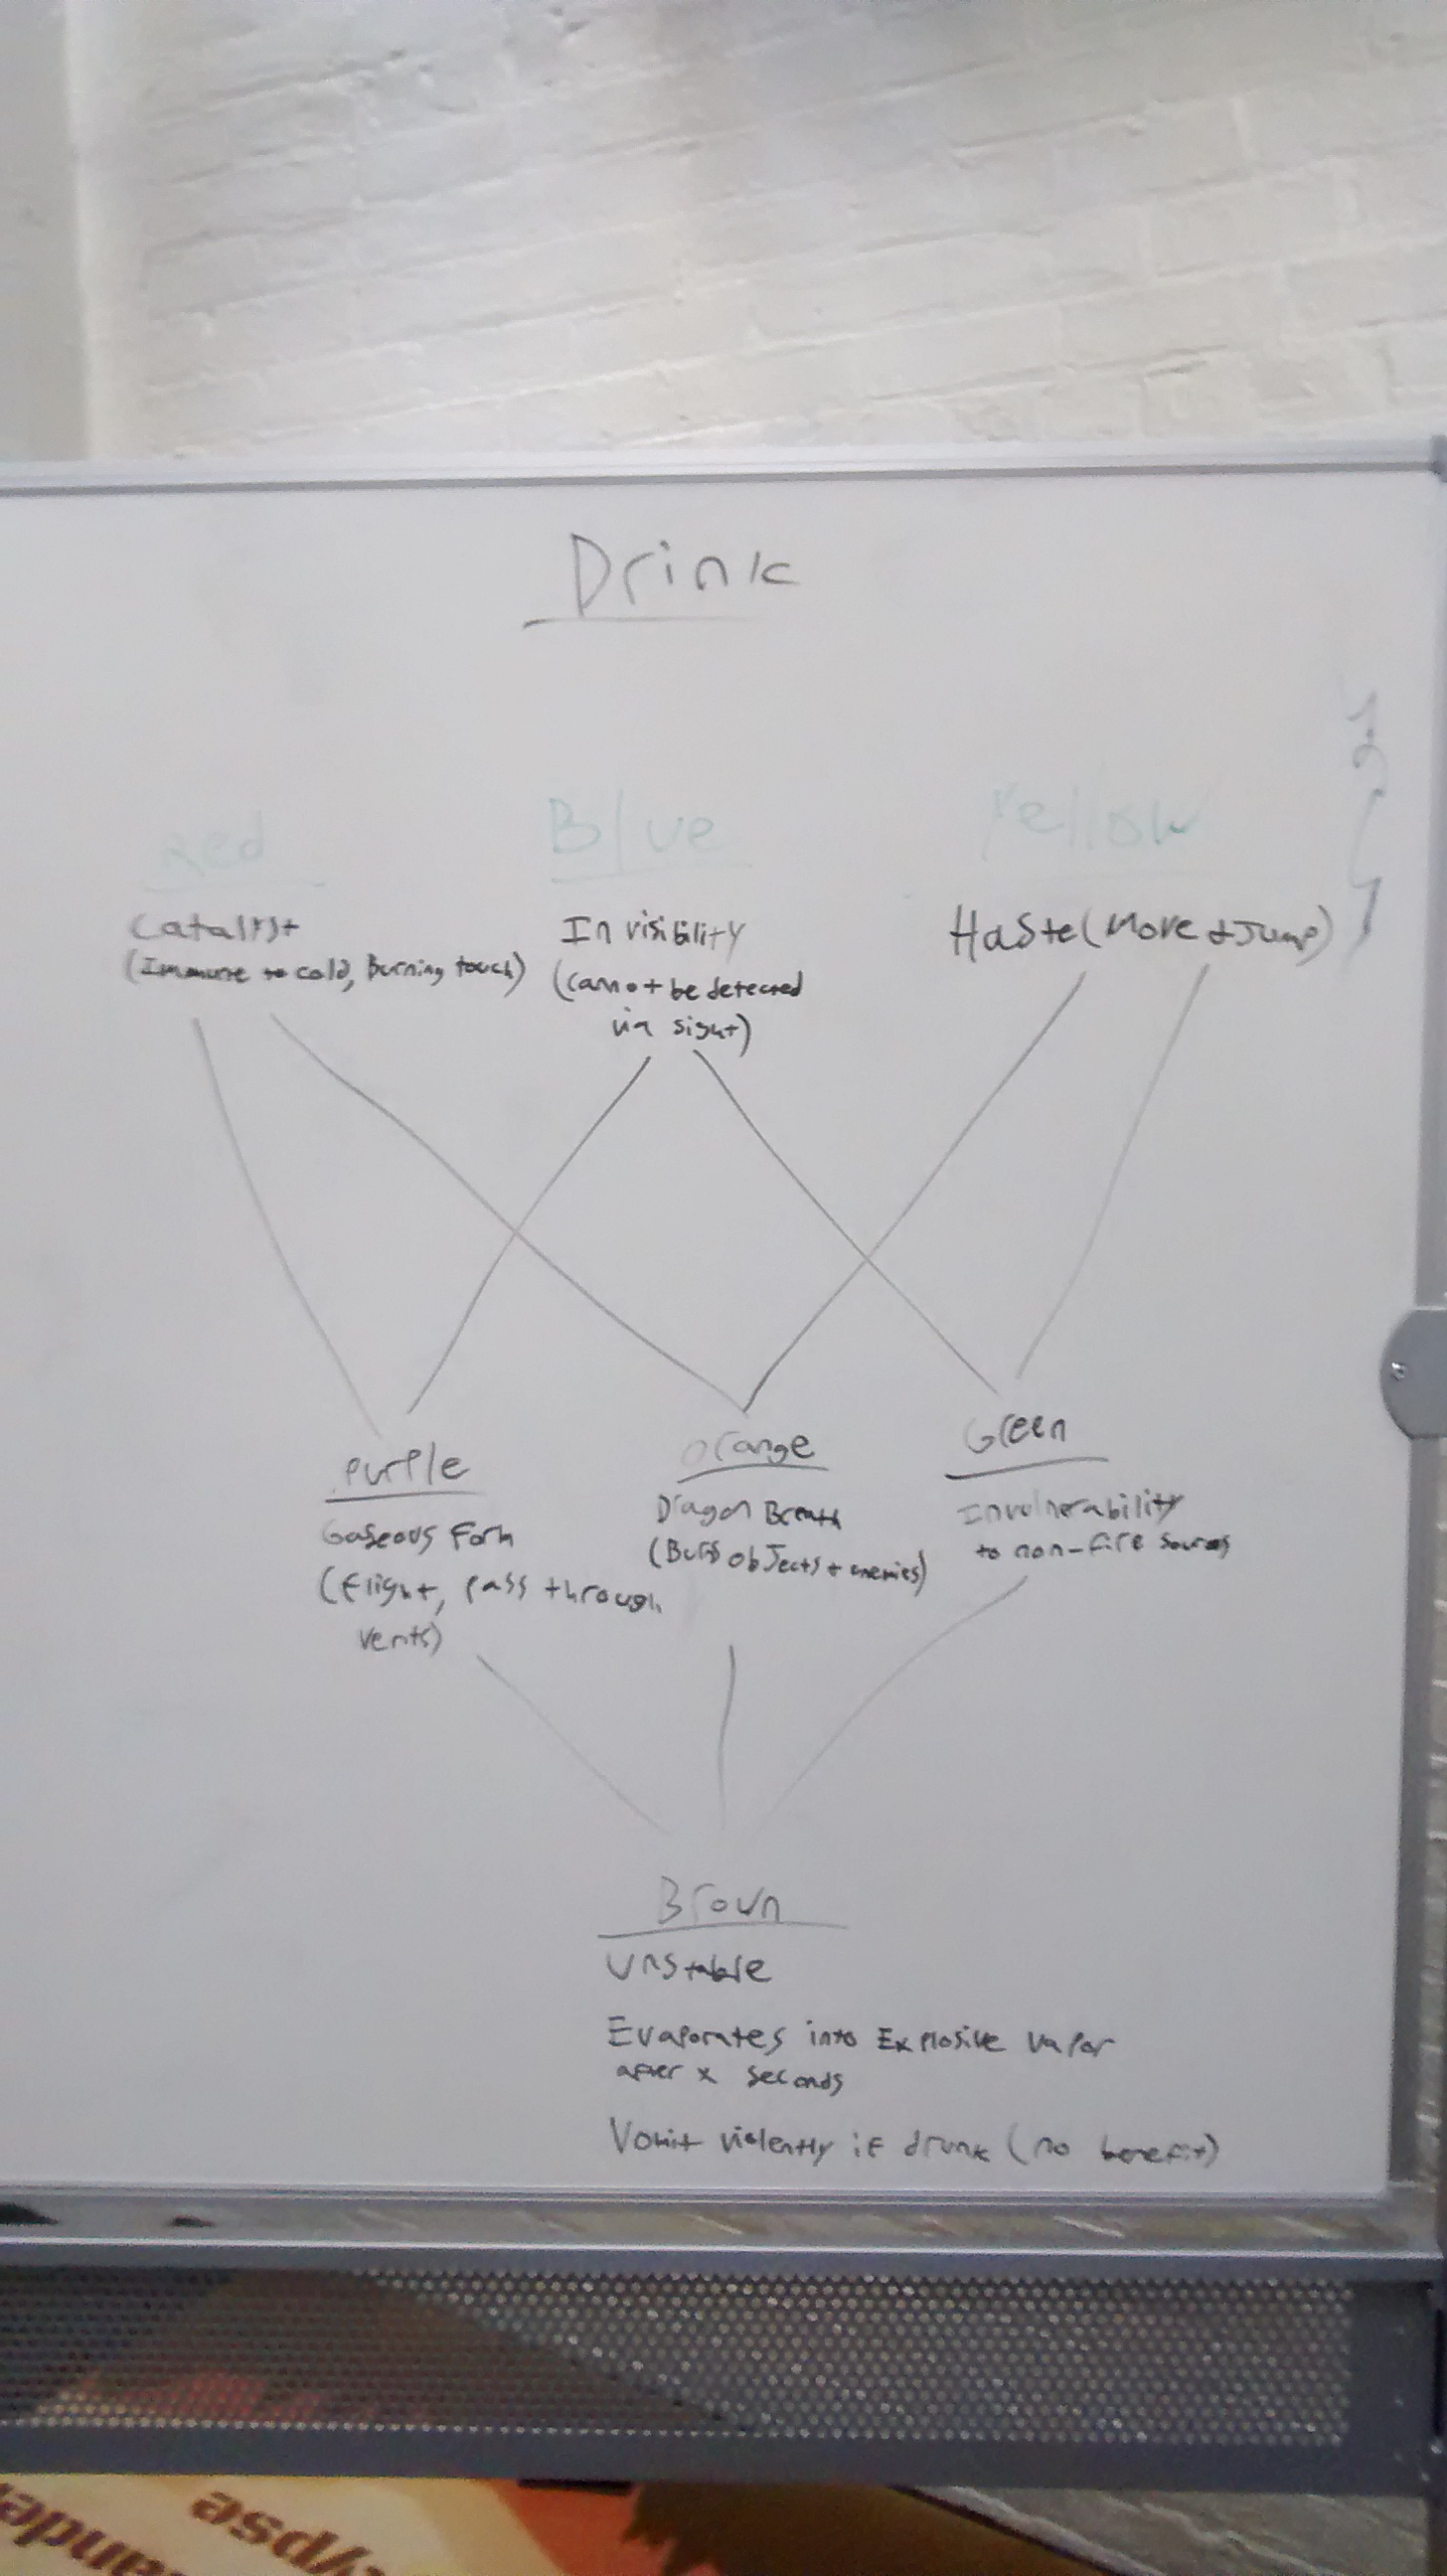 Drink
Red
Blue
Yellow
Catalyst
(Immune to cold, Burning touch)
Invisibility
(cannot be detected
via sight)
Haste (Move + Jump)
Purple
Gaseous Form
(flight, pass through
vents)
Orange
Dragon Breath
(Burns objects + enemies)
Green
Invulnerability
to non-fire sources
Brown
Unstable
Evaporates into Explosive vapor
after x seconds
Vomit violently if drunk (no benefit)
ypse
ande